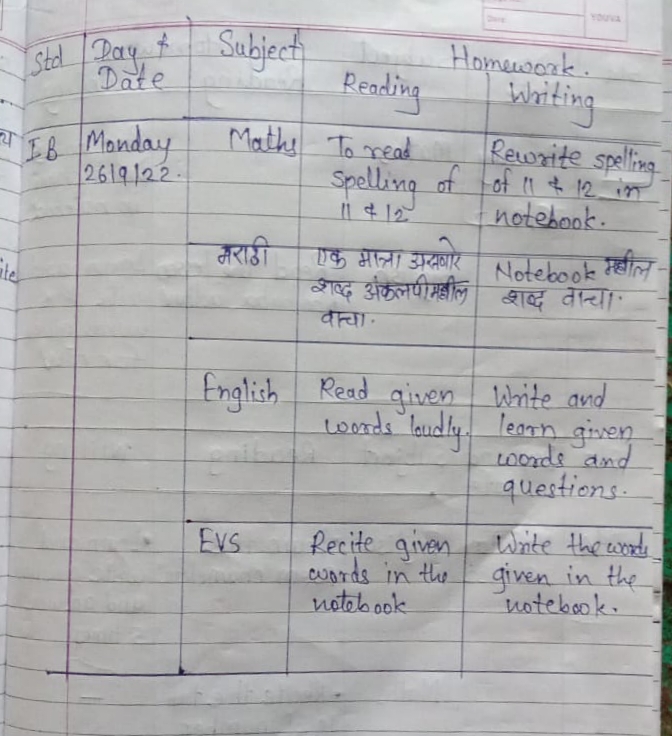 Date
YOUVA
Std Day & Subject Homework.
Date Reading Writing
I B Monday Maths To read Rewrite spelling
26/9/22. spelling of of 11 & 12 in
11 & 12 notebook.
मराठी एक मात्रा असणारे Notebook मधील
शब्द अंकलपीमधील शब्द वाचा.
वाचा.
English Read given Write and
words loudly. learn given
words and
questions.
EVS Recite given Write the words
words in the given in the
notebook notebook.